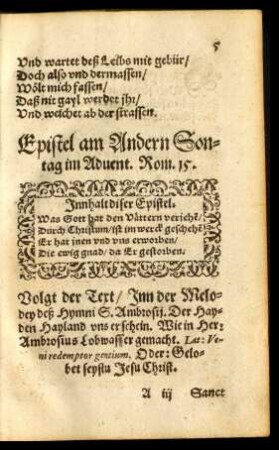 5
Vnd wartet deß Leibs mit gebür/
Doch also vnd dermassen/
Wölt mich fassen/
Daß nit gayl werdet jhr/
Vnd weichet ab der strassen.
Epistel am Andern Son-
tag im Aduent. Rom. 15.
Innhalt diser Epistel.
Was Gott hat den Vättern vericht/
Durch Christum/ ist im werck geschehẽ
Er hat jnen vnd vns erworben/
Die ewig gnad/ da Er gestorben.
Volgt der Text/ Jnn der Melo-
dey deß Hymni S. Ambrosij. Der Hay-
den Hayland vns erschein. Wie in Her:
Ambrosius Lobwasser gemacht. Lat: Ve-
ni redemptor gentium. Oder: Gelo-
bet seystu Jesu Christ.
A iij Sanct